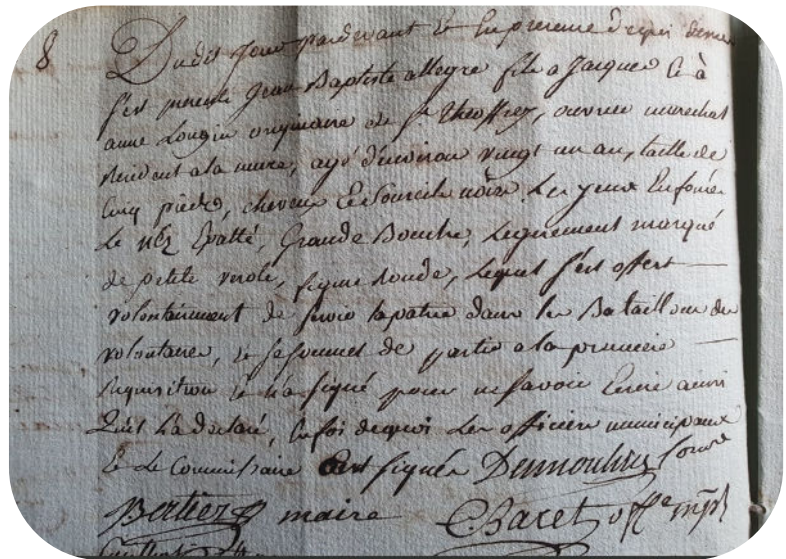 8
Dudit jour pardevant et en presence de qui dessus
s'est presenté Jean Baptiste allegre fils a Jacques et à
anne Lougin originaire de st theoffrey, ouvrier marechal
Resident a la mure, agé d'environ vingt un an, taille de
cinq pieds, cheveux et sourcils noirs, les yeux Enfoncé
Le néz Epatté, Grande Bouche, legerement marqué
de petite verole, figure Ronde, lequel s'est offert
volontairement de servir la patrie dans les Bataillons des
volontaires, et se soumet de partir a la premiere
Requisition et n'a signé pour ne savoir Ecrire ainsi
qu'il L'a declaré, En foi de quoi Les officiers municipaux
et Le Commissaire ont signés Desmoulins
Bertier maire Baret offe mpl